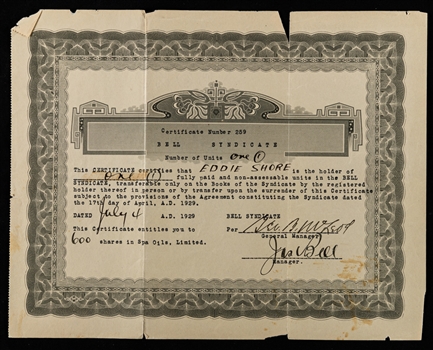 Certificate Number 259
BELL SYNDICATE
Number of Units one (1)
This CERTIFICATE certifies that EDDIE SHORE is the holder of
one (1) fully paid and non-assessable units in the BELL
SYNDICATE, transferable only on the Books of the Syndicate by the registered
holder thereof in person or by transfer upon the surrender of this Certificate
subject to the provisions of the Agreement constituting the Syndicate dated
the 17th day of April, A.D. 1929.
DATED July 4 A.D. 1929 BELL SYNDICATE
This Certificate entitles you to Per
General Manager
600 shares in Spa Oils, Limited.
Jas Bell
Manager.